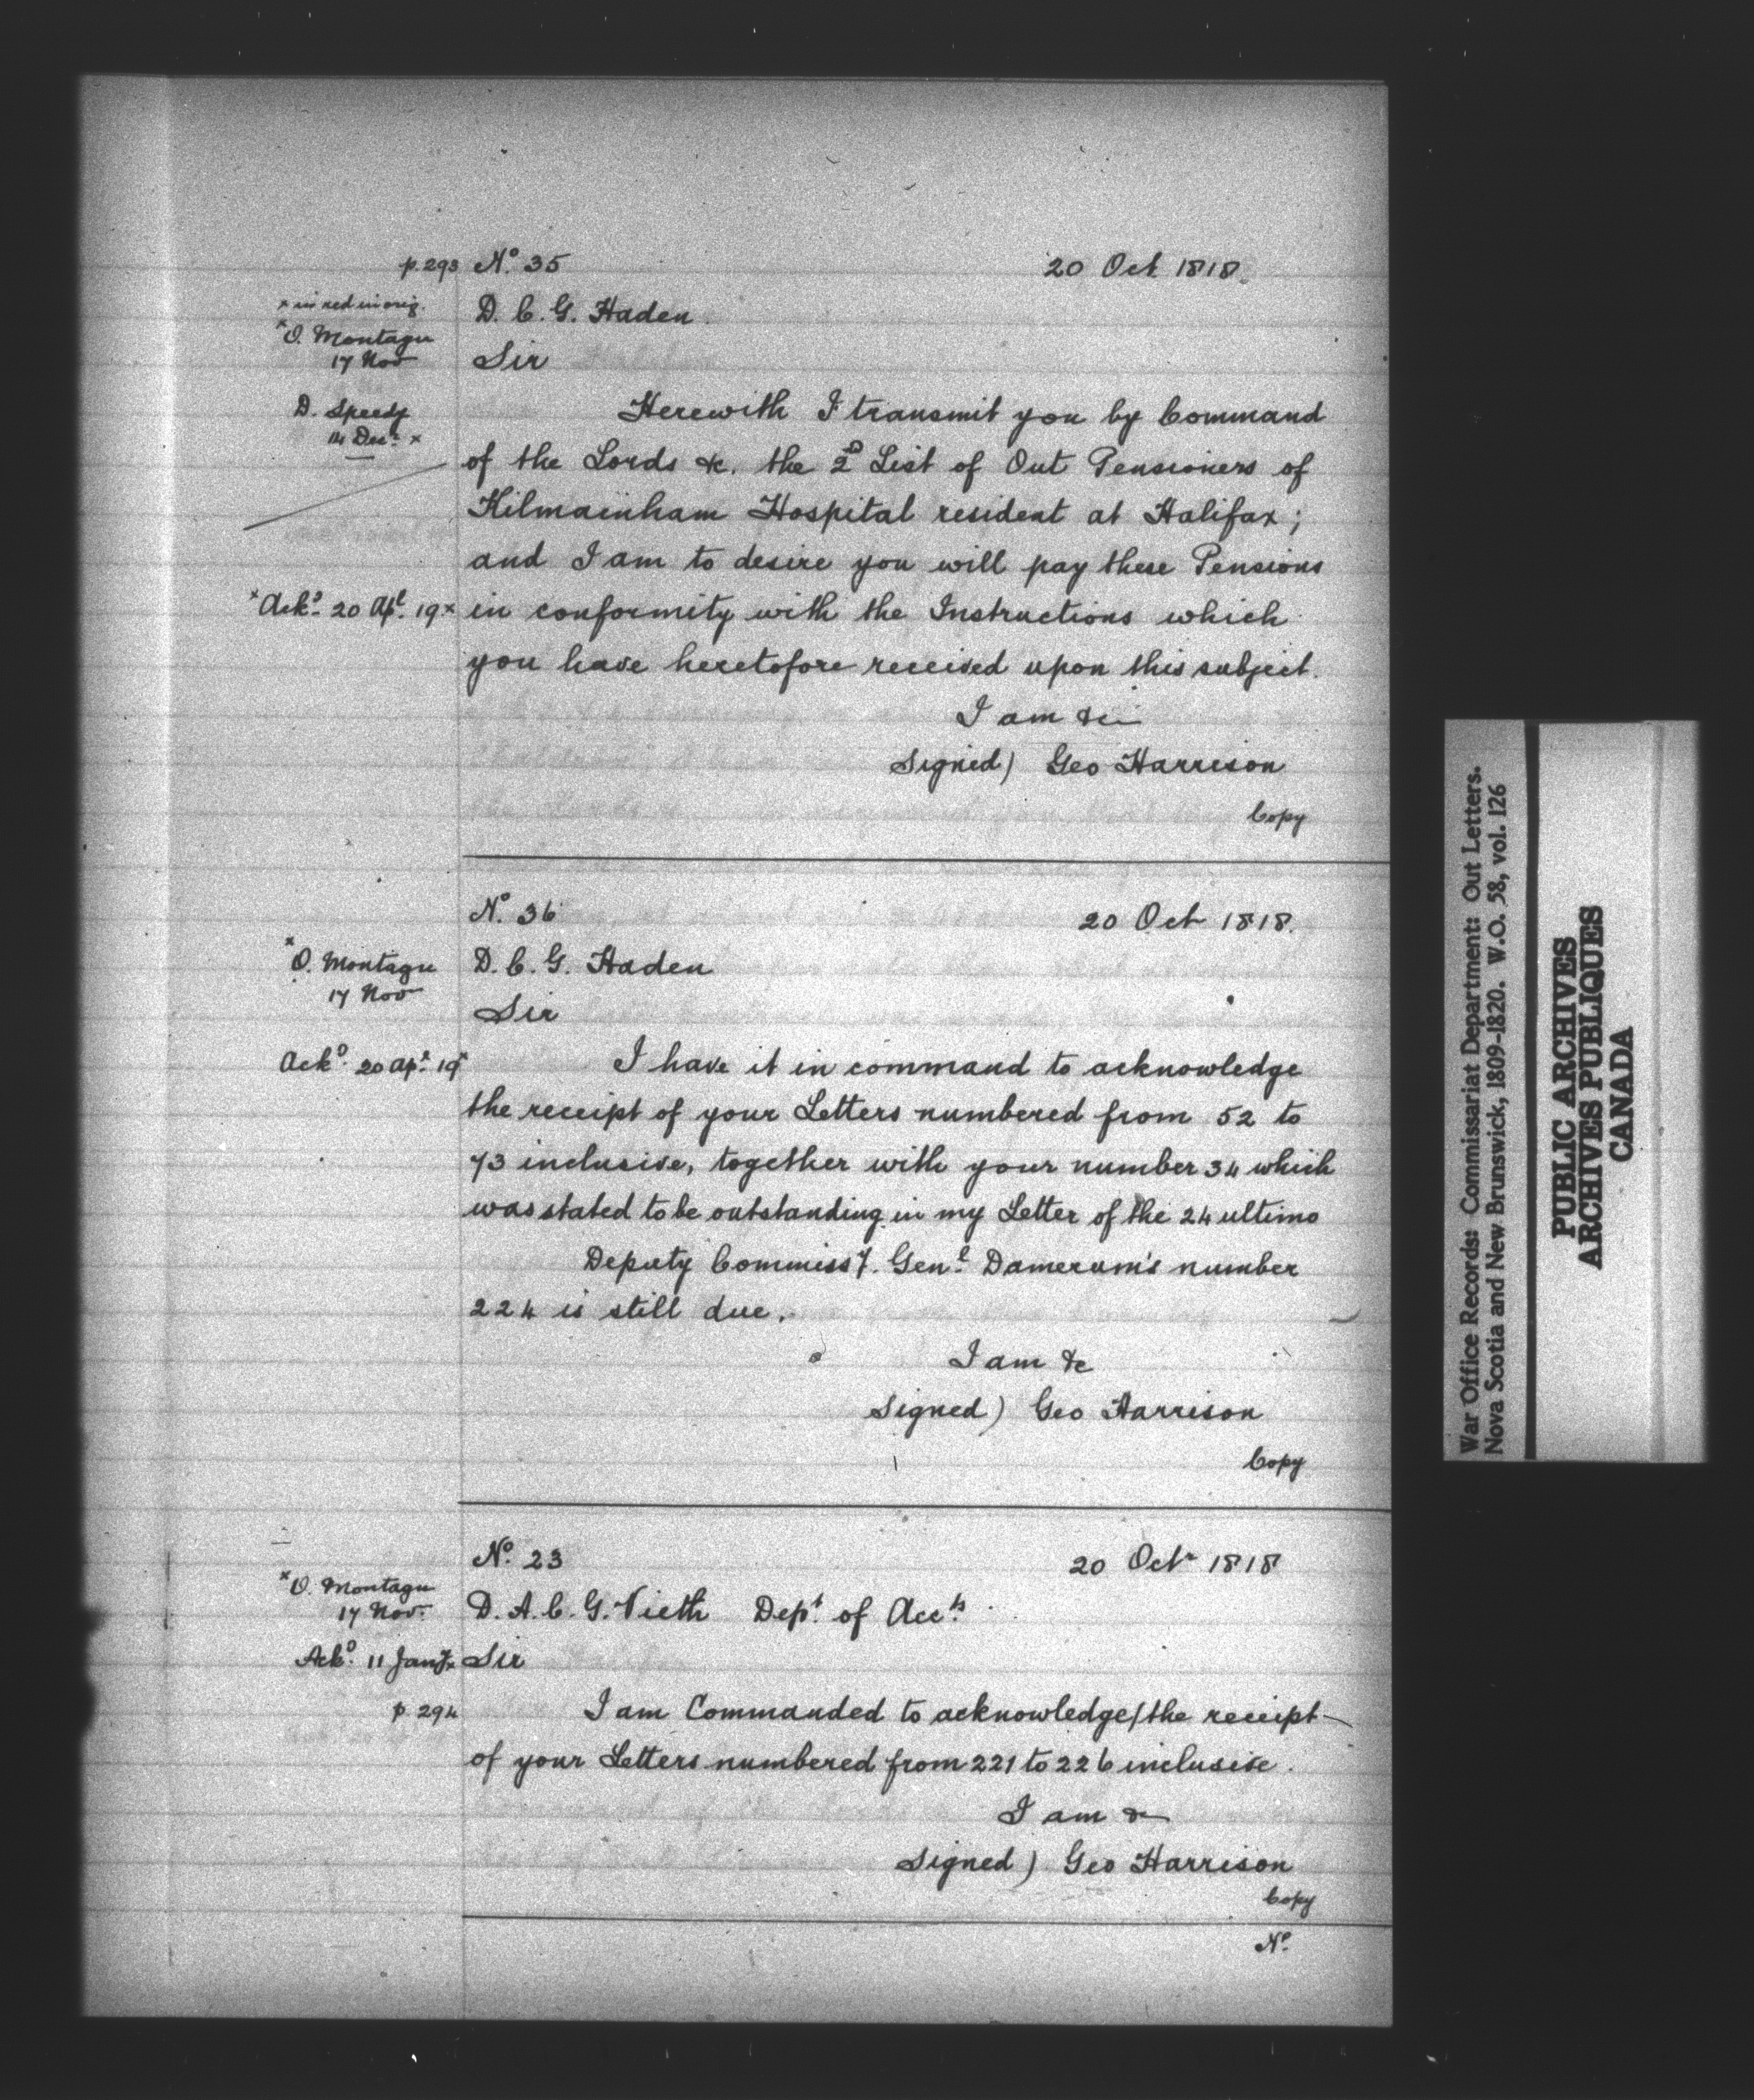 p.293 Nº 35 20 Oct 1818.
x in red in orig.
D. C. G. Haden
x O. Montagu
17 Nov
Sir
D. Speedy
14 Decr x
Herewith I transmit you by Command
of the Lords &c. the 2D List of Out Pensioners of
Kilmainham Hospital resident at Halifax;
and I am to desire you will pay these Pensions
x Ackd 20 Apl 19 x
in conformity with the Instructions which
you have heretofore received upon this subject.
I am &c
Signed) Geo Harrison
Copy
Nº 36 20 Oct 1818.
x O. Montagu
17 Nov
D. C. G. Haden
Sir
Ackd 20 Apr 19 x
I have it in command to acknowledge
the receipt of your Letters numbered from 52 to
73 inclusive, together with your number 34 which
was stated to be outstanding in my Letter of the 24 ultimo
Deputy Commissy. Genl Damerum's number
224 is still due.
I am &c
Signed) Geo Harrison
Copy
Nº 23 20 Octr 1818
x O. Montagu
17 Nov.
D. A. C. G. Vieth Dept of Accts
Ackd 11 Jany x
Sir
p. 294
I am Commanded to acknowledge/the receipt
of your Letters numbered from 221 to 226 inclusive.
I am &c
Signed) Geo Harrison
Copy
Nº
War Office Records: Commissariat Department: Out Letters.
Nova Scotia and New Brunswick, 1809-1820. W.O. 58, vol. 126
PUBLIC ARCHIVES
ARCHIVES PUBLIQUES
CANADA